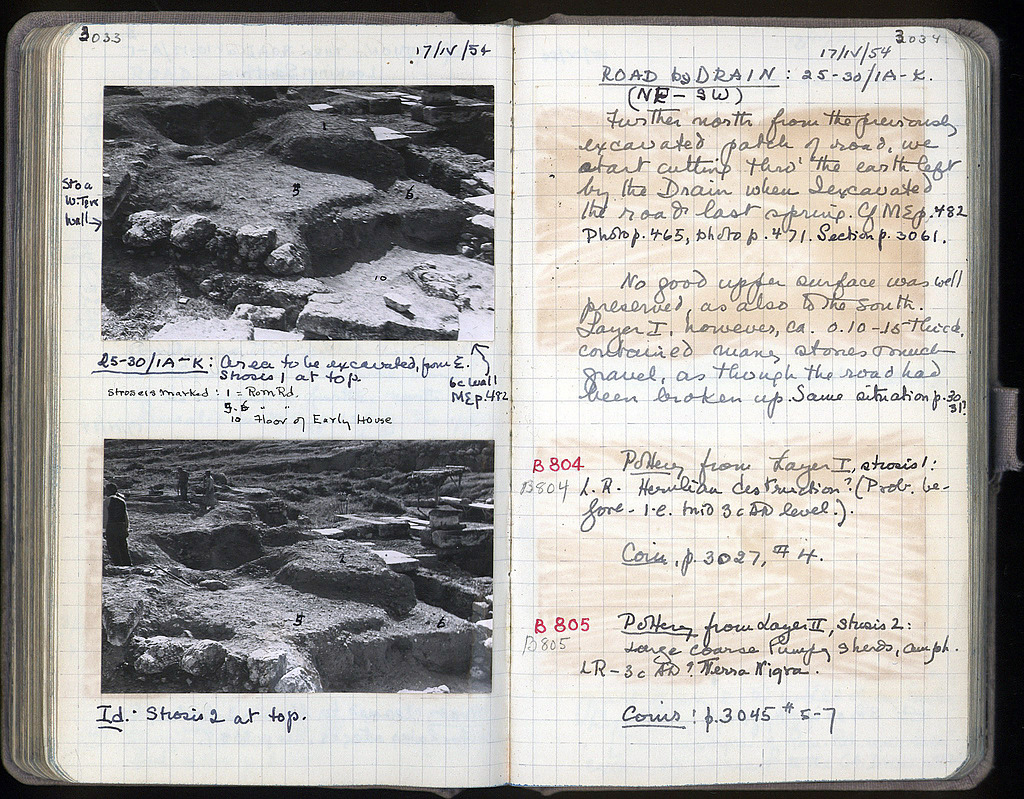 3033
17/IV/54
1
5
6
10
Stoa
W. Terr
Wall →
25-30/1A-K: Area to be excavated, from E.
Strosis 1 at top
6c Wall
MΣ p. 482
Stroseis marked: 1 = Rom Rd.
5.6 " "
10 Floor of Early House
2
5
6
Id. Strosis 2 at top.
3034
17/IV/54
ROAD by DRAIN: 25-30/1A-K.
(NE-SW)
Further north from the previously
excavated patch of road, we
start cutting thro' the earth left
by the Drain when I excavated
the road last spring. Cf MΣ p. 482
Photo p. 465, photo p. 471. Section p. 3061.
No good upper surface was well
preserved, as also to the south.
Layer I, however, ca. 0.10-15 thick,
contained many stones & much
gravel, as though the road had
been broken up. Same situation p. 30
31?
B804
B804
Pottery from Layer I, strosis 1:
L.R. Herulian destruction? (Prob. be-
fore - i.e. mid 3c AD level.).
Coin, p. 3027, #4.
B805
B805
Pottery from Layer II, strosis 2:
Large coarse sherds, amph.
LR-3c AD? Terra Nigra.
Coins: p. 3045 #5-7